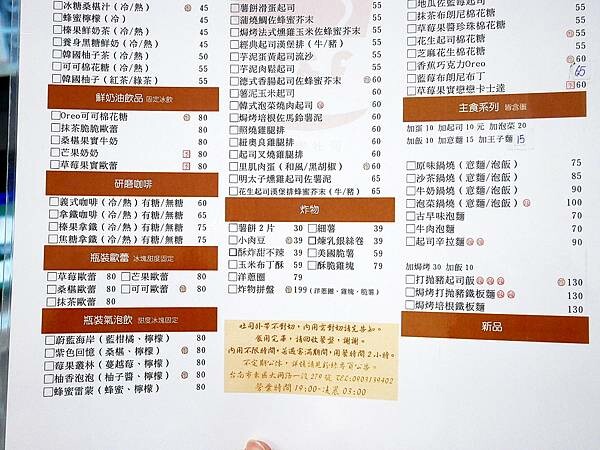 冰糖桑椹汁（冷/熱） 45
蜂蜜檸檬（冷） 45
榛果鮮奶茶（冷/熱） 55
養身黑糖鮮奶（冷/熱） 55
韓國柚子茶（冷/熱） 50
可可棉花糖（冷/熱） 55
韓國柚子（紅茶/綠茶） 55
鮮奶油飲品 固定冰飲
Oreo可可棉花糖 80
抹茶脆脆歐蕾 80
桑椹果實牛奶 80
芒果奶奶 80
草莓果實歐蕾 80
研磨咖啡
義式咖啡（冷/熱）有糖/無糖 60
拿鐵咖啡（冷/熱）有糖/無糖 65
榛果拿鐵（冷/熱）有糖/無糖 75
焦糖拿鐵（冷/熱）有糖/無糖 75
瓶裝歐蕾 冰塊甜度固定
草莓歐蕾 80 芒果歐蕾 80
桑椹歐蕾 80 可可歐蕾 80
抹茶歐蕾 80
瓶裝氣泡飲 甜度冰塊固定
蔚藍海岸（藍柑橘、檸檬） 80
紫色回憶（桑椹、檸檬） 80
莓果叢林（蔓越莓、檸檬） 80
柚香泡泡（柚子醬、檸檬） 80
蜂蜜雷蒙（蜂蜜、檸檬） 80
薯餅滑蛋起司 55
蒲燒鯛佐蜂蜜芥末 55
焗烤法式燻雞玉米起司 55
經典起司漢堡排（牛/豬） 55
芋泥蛋黃起司流沙 55
芋泥肉鬆起司 55
德式香腸起司佐蜂蜜芥末 60
薯泥玉米起司 60
韓式泡菜燒肉起司 60
焗烤培根佐馬鈴薯泥 60
照燒雞腿排 60
紐奧良雞腿排 60
起司叉燒雞腿排 60
里肌肉蛋（和風/黑胡椒） 60
明太子燻雞起司佐薯泥 65
花生起司漢堡排蜂蜜芥末（牛/豬） 65
炸物
薯餅2片 30 細薯 39
小肉豆 39 煉乳銀絲卷 39
酥炸甜不辣 39 美國脆薯 59
玉米布丁酥 59 酥脆雞塊 79
洋蔥圈 79
炸物拼盤 199（洋蔥圈、雞塊、脆薯）
吐司外帶不對切，內用需對切請先告知。
飯用完畢，請回收餐盤，謝謝。
內用不限時間，若遇客滿期間，用餐時間2小時。
台南市東區大同路一段279號 TEL:0903139402
營業時間 19:00-凌晨 03:00
地瓜佐藍莓起司
抹茶布朗尼棉花糖 55
草莓果醬珍珠棉花糖 55
花生起司棉花糖 55
芝麻花生棉花糖 55
香蕉巧克力Oreo 60
藍莓布朗尼布丁 65
草莓果實戀戀卡士達 60
主食系列 皆含蛋
加蛋 10 加起司 10元 加泡菜 20
加飯 10 加意麵 15 加王子麵 15
原味鍋燒（意麵/泡飯） 75
沙茶鍋燒（意麵/泡飯） 85
牛奶鍋燒（意麵/泡飯） 90
泡菜鍋燒（意麵/泡飯） 100
古早味泡麵 70
牛肉泡麵 70
起司辛拉麵 90
加焗烤 30 加飯 10
打拋豬起司飯 130
焗烤打拋豬鐵板麵 130
焗烤培根鐵板麵 130
新品